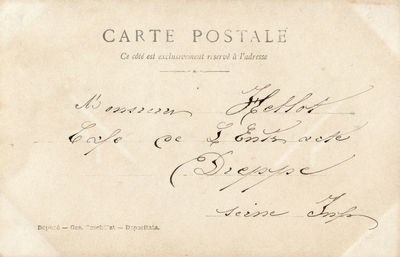 CARTE POSTALE
Ce côté est exclusivement réservé à l'adresse
Monsieur Hellot
Cafe de L'Entr'acte
Dieppe
Seine Inf
Déposé — — Dépositaire.